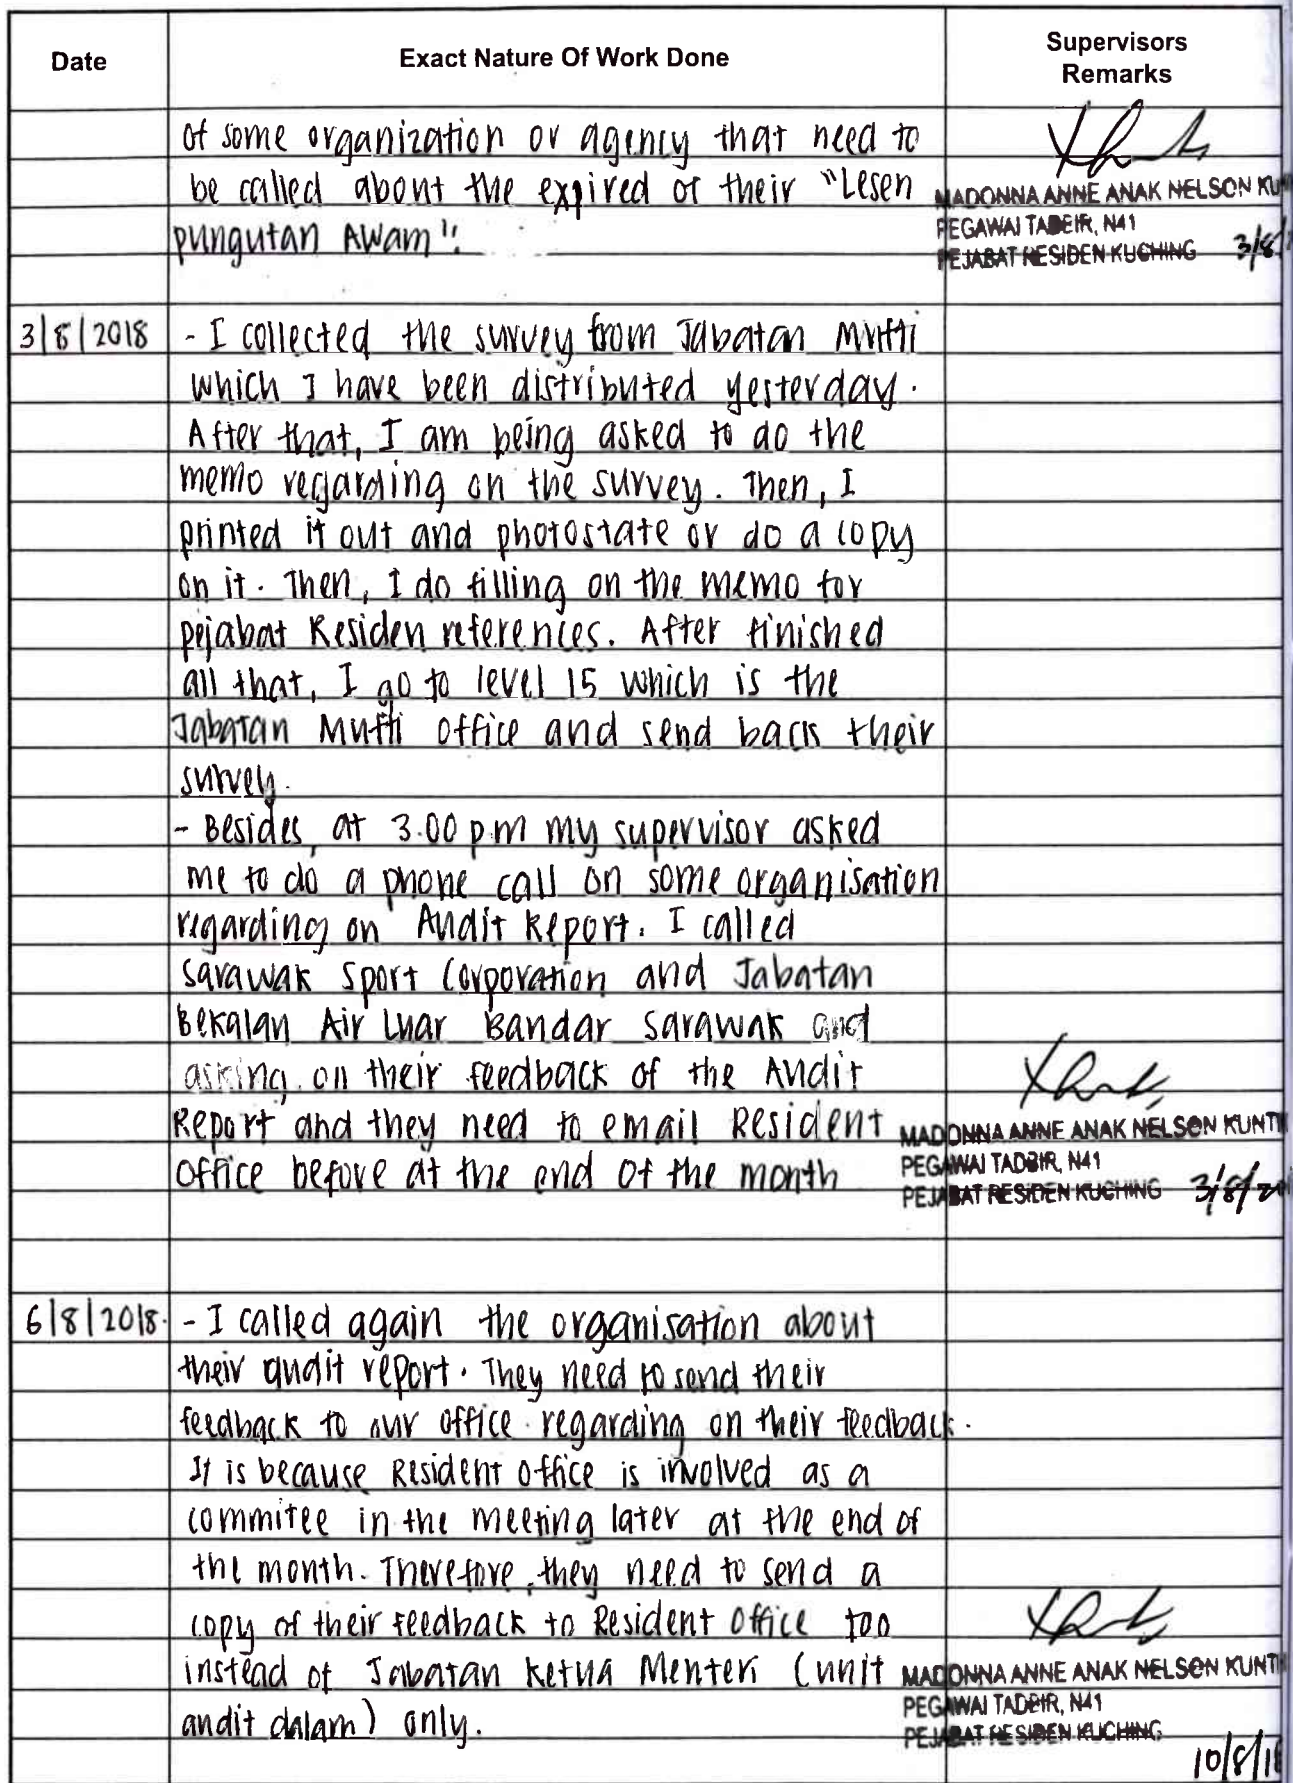 Date
Exact Nature Of Work Done
Supervisors
Remarks
of some organization or agency that need to
be called about the expired of their "Lesen
pungutan Awam".
MADONNA ANNE ANAK NELSON KU
PEGAWAI TADBIR, N41
PEJABAT RESIDEN KUCHING 3/8/
3/8/2018
- I collected the survey from Jabatan Mufti
which I have been distributed yesterday.
After that, I am being asked to do the
memo regarding on the survey. Then, I
printed it out and photostate or do a copy
on it. Then, I do filling on the memo for
pejabat Residen references. After finished
all that, I go to level 15 which is the
Jabatan Mufti office and send back their
survey.
- Besides, at 3.00 p.m my supervisor asked
me to do a phone call on some organisation
regarding on Audit Report. I called
Sarawak Sport Corporation and Jabatan
Bekalan Air Luar Bandar Sarawak and
asking on their feedback of the Audit
Report and they need to email Resident
Office before at the end of the month
MADONNA ANNE ANAK NELSON KUNTI
PEGAWAI TADBIR, N41
PEJABAT RESIDEN KUCHING 3/8/20
6/8/2018.
- I called again the organisation about
their audit report. They need to send their
feedback to our office regarding on their feedback.
It is because Resident Office is involved as a
commitee in the meeting later at the end of
the month. Therefore, they need to send a
copy of their feedback to Resident Office too
instead of Jabatan Ketua Menteri (unit
audit dalam) only.
MADONNA ANNE ANAK NELSON KUNTI
PEGAWAI TADBIR, N41
PEJABAT RESIDEN KUCHING
10/8/18